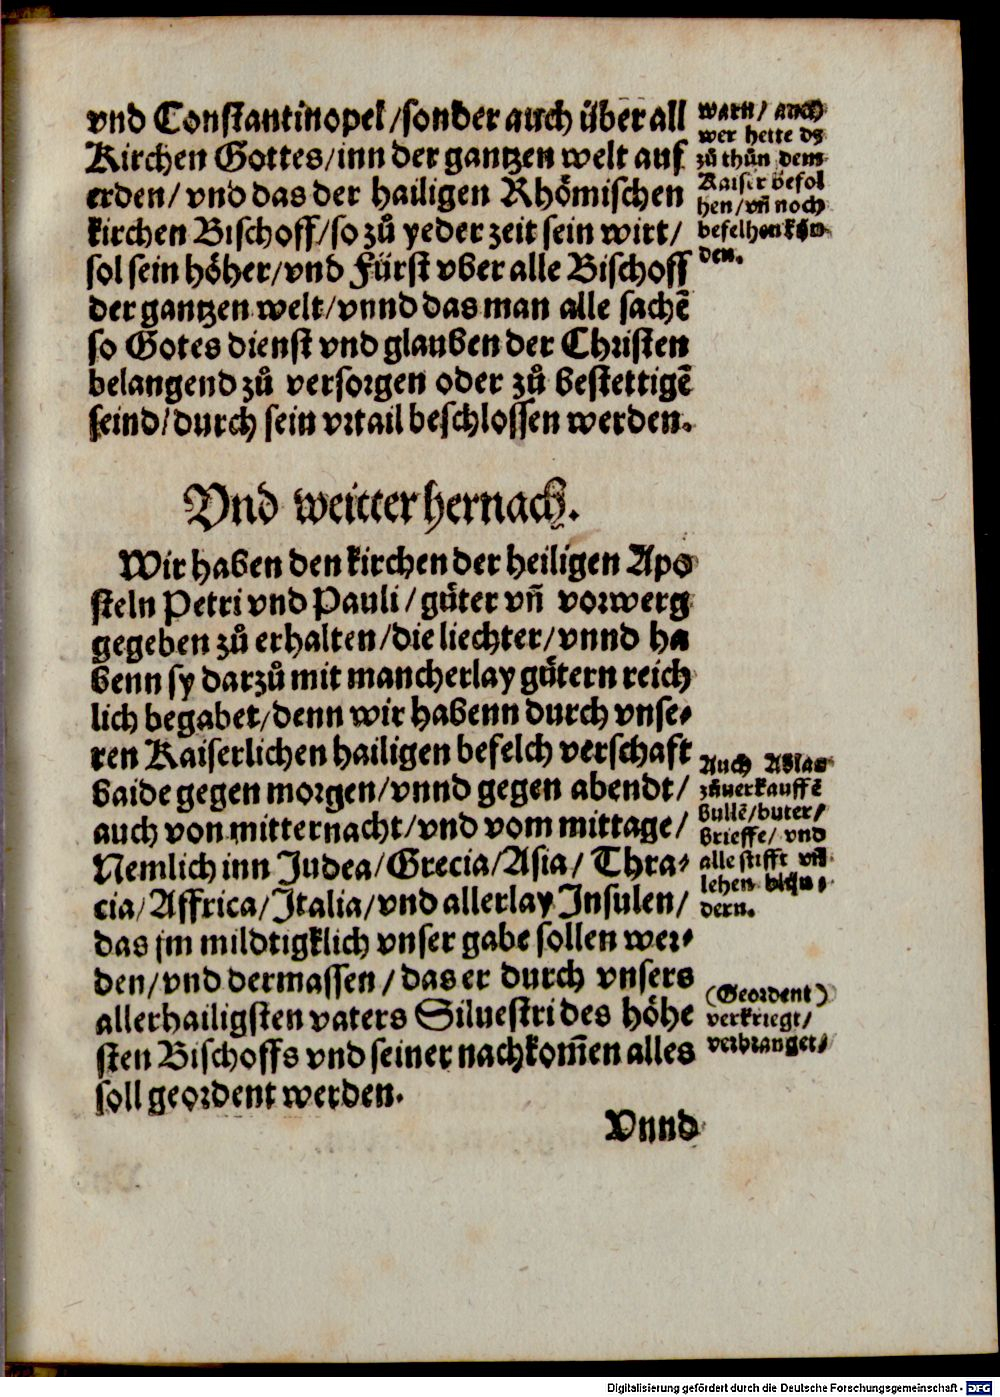 vnd Constantinopel/sonder auch über all
Kirchen Gottes/inn der gantzen welt auf
erden/ vnd das der hailigen Rhömischen
kirchen Bischoff/so zů yeder zeit sein wirt/
sol sein höher/vnd Fürst vber alle Bischoff
der gantzen welt/vnnd das man alle sachē
so Gotes dienst vnd glauben der Christen
belangend zů versorgen oder zů bestettigē
seind/durch sein vrtail beschlossen werden.
warn/ auch
wer hette dz
zů thůn dem
Kaiser befol
hen/vñ noch
befelhen kön
den.
Vnd weitter hernach.
Wir haben den kirchen der heiligen Apo
steln Petri vnd Pauli/güter vñ vorwerg
gegeben zů erhalten/die liechter/vnnd ha
benn sy darzů mit mancherlay gütern reich
lich begabet/denn wir habenn durch vnse-
ren Kaiserlichen hailigen befelch verschaft
baide gegen morgen/vnnd gegen abendt/
auch von mitternacht/vnd vom mittage/
Nemlich inn Judea/Grecia/Asia/ Thra-
cia/Affrica/Italia/vnd allerlay Insulen/
das jm mildtigklich vnser gabe sollen wer-
den/vnd dermassen/das er durch vnsers
allerhailigsten vaters Siluestri des höhe
sten Bischoffs vnd seiner nachkom̄en alles
soll geordent werden.
Auch Ablas
zůuerkauffē
bullē/buter/
brieffe/ vnd
alle stifft vñ
lehen
dern.
(Geordent)
verkriegt/
verbranget/
Vnnd
Digitalisierung gefördert durch die Deutsche Forschungsgemeinschaft - DFG